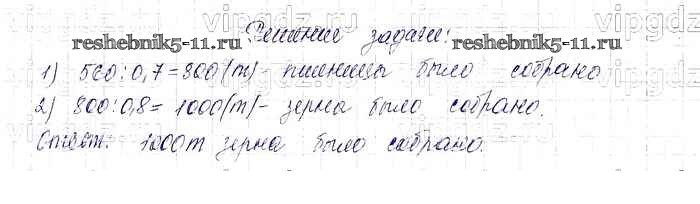 Решение задачи:
1) 560:0,7=800(т)- пшеницы было собрано
2) 800:0,8= 1000(т)- зерна было собрано.
Ответ: 1000т зерна было собрано.
reshebnik5-11.ru
reshebnik5-11.ru
vipgdz